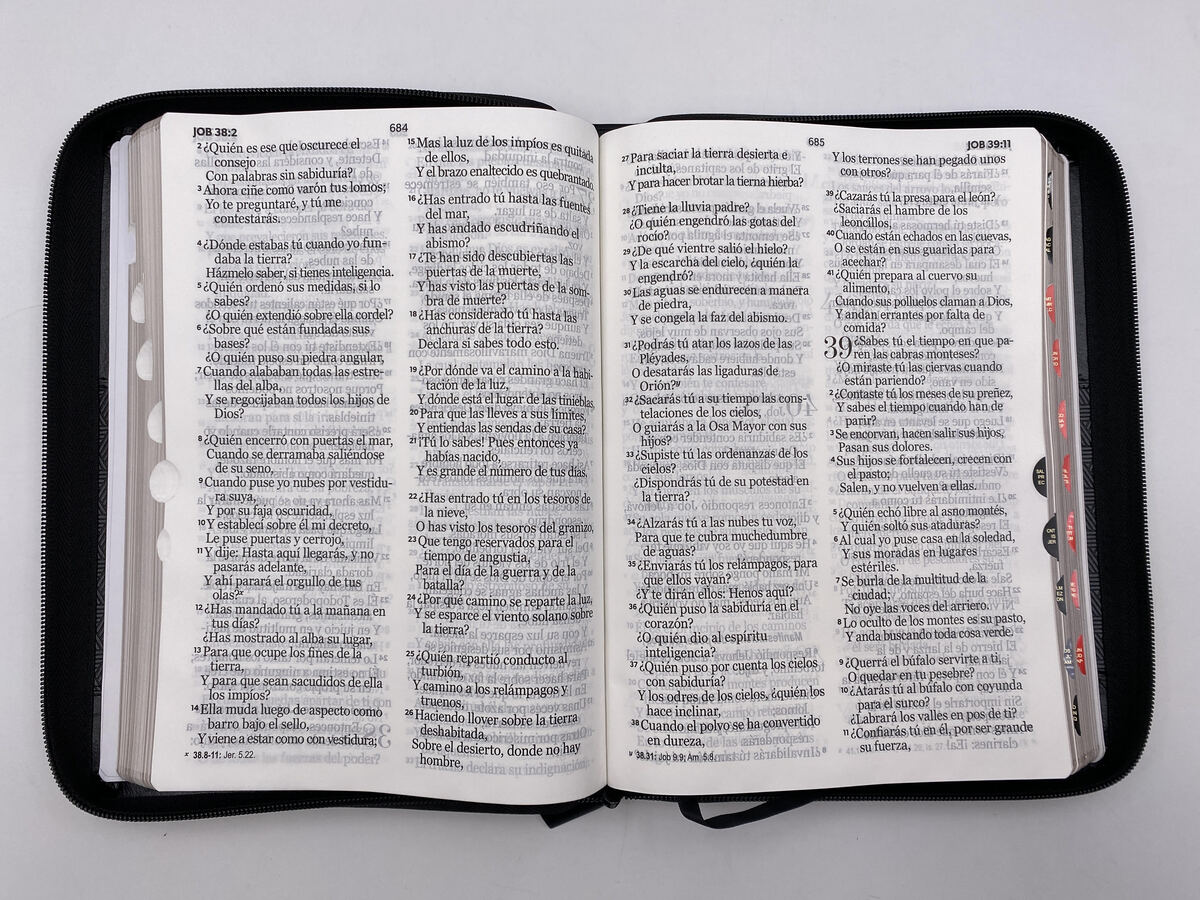 JOB 38:2
684
2 ¿Quién es ese que oscurece el
consejo
Con palabras sin sabiduría?
3 Ahora ciñe como varón tus lomos;
Yo te preguntaré, y tú me
contestarás.
4 ¿Dónde estabas tú cuando yo fun-
daba la tierra?
Házmelo saber, si tienes inteligencia.
5 ¿Quién ordenó sus medidas, si lo
sabes?
¿O quién extendió sobre ella cordel?
6 ¿Sobre qué están fundadas sus
bases?
¿O quién puso su piedra angular,
7 Cuando alababan todas las estre-
llas del alba,
Y se regocijaban todos los hijos de
Dios?
8 ¿Quién encerró con puertas el mar,
Cuando se derramaba saliéndose
de su seno,
9 Cuando puse yo nubes por vestidu-
ra suya,
Y por su faja oscuridad,
10 Y establecí sobre él mi decreto,
Le puse puertas y cerrojo,
11 Y dije: Hasta aquí llegarás, y no
pasarás adelante,
Y ahí parará el orgullo de tus
olas?x
12 ¿Has mandado tú a la mañana en
tus días?
¿Has mostrado al alba su lugar,
13 Para que ocupe los fines de la
tierra,
Y para que sean sacudidos de ella
los impíos?
14 Ella muda luego de aspecto como
barro bajo el sello,
Y viene a estar como con vestidura;
x 38.8-11: Jer. 5.22.
15 Mas la luz de los impíos es quitada
de ellos,
Y el brazo enaltecido es quebrantado.
16 ¿Has entrado tú hasta las fuentes
del mar,
Y has andado escudriñando el
abismo?
17 ¿Te han sido descubiertas las
puertas de la muerte,
Y has visto las puertas de la som-
bra de muerte?
18 ¿Has considerado tú hasta las
anchuras de la tierra?
Declara si sabes todo esto.
19 ¿Por dónde va el camino a la habi-
tación de la luz,
Y dónde está el lugar de las tinieblas,
20 Para que las lleves a sus límites,
Y entiendas las sendas de su casa?
21 ¡Tú lo sabes! Pues entonces ya
habías nacido,
Y es grande el número de tus días.
22 ¿Has entrado tú en los tesoros de
la nieve,
O has visto los tesoros del granizo,
23 Que tengo reservados para el
tiempo de angustia,
Para el día de la guerra y de la
batalla?
24 ¿Por qué camino se reparte la luz,
Y se esparce el viento solano sobre
la tierra?
25 ¿Quién repartió conducto al
turbión,
Y camino a los relámpagos y
truenos,
26 Haciendo llover sobre la tierra
deshabitada,
Sobre el desierto, donde no hay
hombre,
685
JOB 39:11
27 Para saciar la tierra desierta e
inculta,
Y para hacer brotar la tierna hierba?
28 ¿Tiene la lluvia padre?
¿O quién engendró las gotas del
rocío?
29 ¿De qué vientre salió el hielo?
Y la escarcha del cielo, ¿quién la
engendró?
30 Las aguas se endurecen a manera
de piedra,
Y se congela la faz del abismo.
31 ¿Podrás tú atar los lazos de las
Pléyades,
O desatarás las ligaduras de
Orión?y
32 ¿Sacarás tú a su tiempo las cons-
telaciones de los cielos,
O guiarás a la Osa Mayor con sus
hijos?
33 ¿Supiste tú las ordenanzas de los
cielos?
¿Dispondrás tú de su potestad en
la tierra?
34 ¿Alzarás tú a las nubes tu voz,
Para que te cubra muchedumbre
de aguas?
35 ¿Enviarás tú los relámpagos, para
que ellos vayan?
¿Y te dirán ellos: Henos aquí?
36 ¿Quién puso la sabiduría en el
corazón?
¿O quién dio al espíritu
inteligencia?
37 ¿Quién puso por cuenta los cielos
con sabiduría?
Y los odres de los cielos, ¿quién los
hace inclinar,
38 Cuando el polvo se ha convertido
en dureza,
y 38.31: Job 9.9; Am. 5.8.
Y los terrones se han pegado unos
con otros?
39 ¿Cazarás tú la presa para el león?
¿Saciarás el hambre de los
leoncillos,
40 Cuando están echados en las cuevas,
O se están en sus guaridas para
acechar?
41 ¿Quién prepara al cuervo su
alimento,
Cuando sus polluelos claman a Dios,
Y andan errantes por falta de
comida?
39 ¿Sabes tú el tiempo en que pa-
rén las cabras monteses?
¿O miraste tú las ciervas cuando
están pariendo?
2 ¿Contaste tú los meses de su preñez,
Y sabes el tiempo cuando han de
parir?
3 Se encorvan, hacen salir sus hijos,
Pasan sus dolores.
4 Sus hijos se fortalecen, crecen con
el pasto;
Salen, y no vuelven a ellas.
5 ¿Quién echó libre al asno montés,
Y quién soltó sus ataduras?
6 Al cual yo puse casa en la soledad,
Y sus moradas en lugares
estériles.
7 Se burla de la multitud de la
ciudad;
No oye las voces del arriero.
8 Lo oculto de los montes es su pasto,
Y anda buscando toda cosa verde.
9 ¿Querrá el búfalo servirte a ti,
O quedar en tu pesebre?
10 ¿Atarás tú al búfalo con coyunda
para el surco?
¿Labrará los valles en pos de ti?
11 ¿Confiarás tú en él, por ser grande
su fuerza,
SAL
PR
EC
CNT
IS
JER